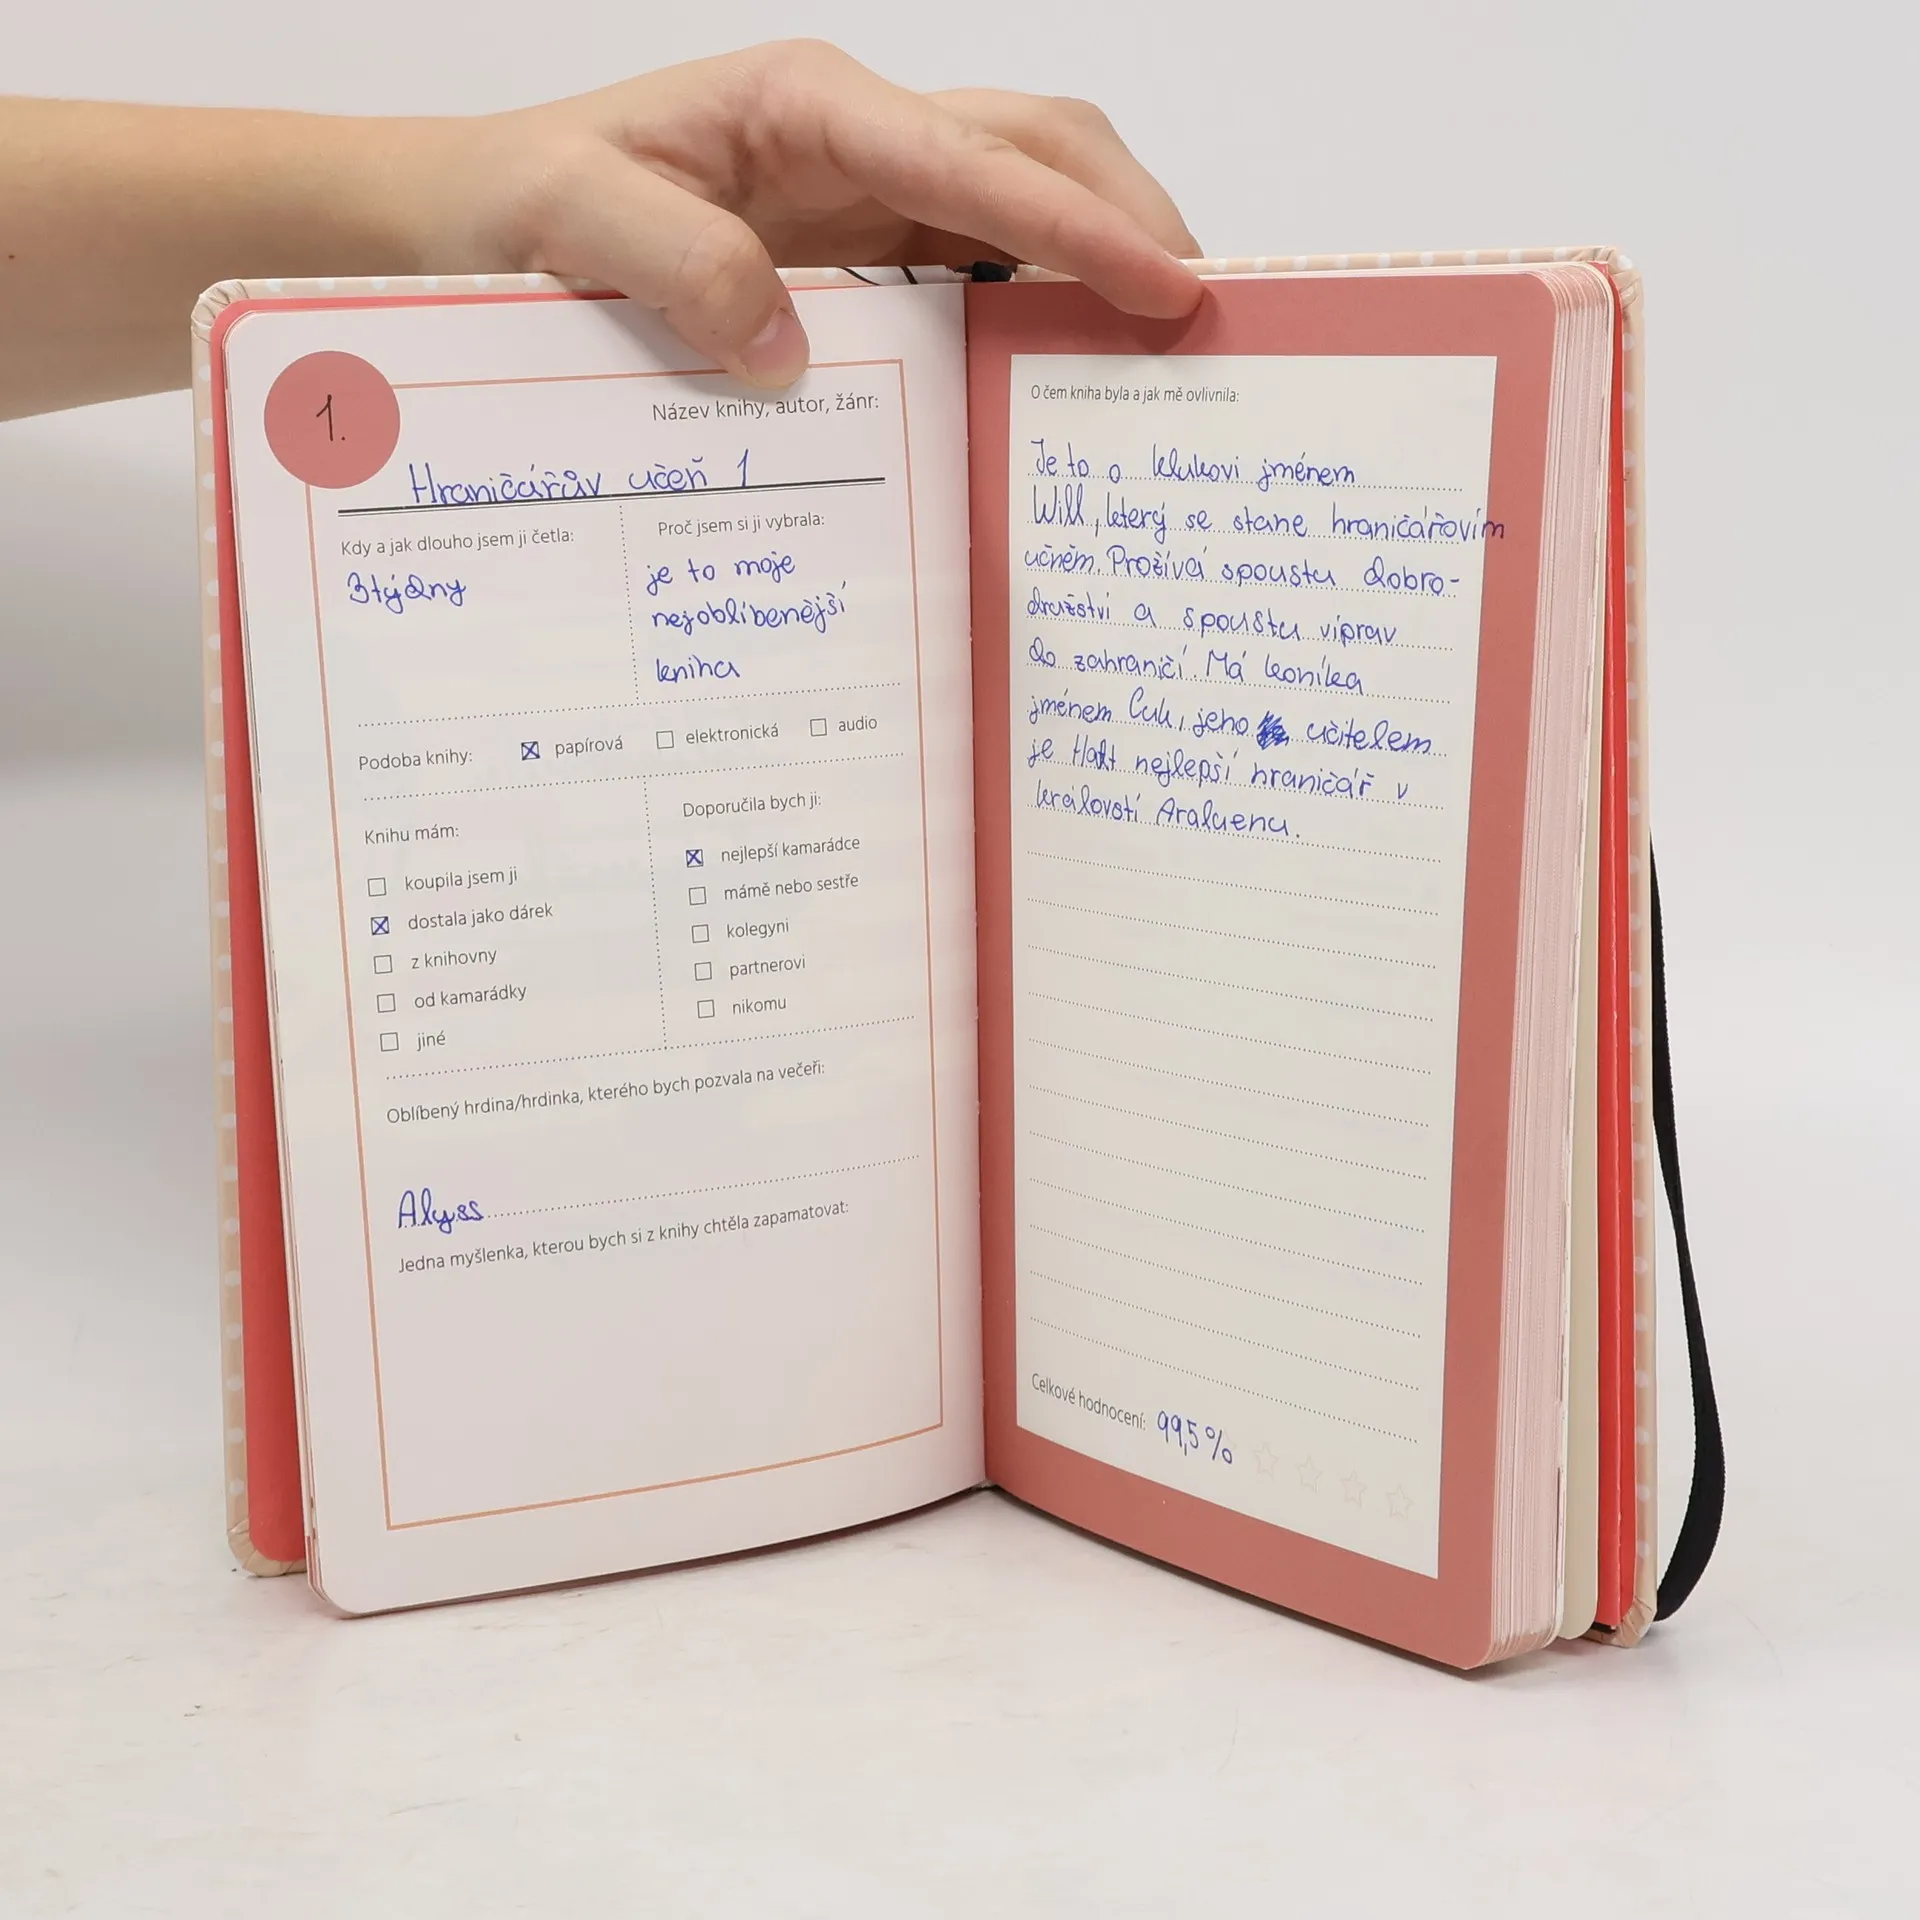 1.
Název knihy, autor, žánr:
Hraničářův učeň 1
Kdy a jak dlouho jsem ji četla:
3týdny
Proč jsem si ji vybrala:
je to moje
nejoblíbenější
kniha
Podoba knihy: papírová elektronická audio
Knihu mám:
koupila jsem ji
dostala jako dárek
z knihovny
od kamarádky
jiné
Doporučila bych ji:
nejlepší kamarádce
mámě nebo sestře
kolegyni
partnerovi
nikomu
Oblíbený hrdina/hrdinka, kterého bych pozvala na večeři:
Alyss
Jedna myšlenka, kterou bych si z knihy chtěla zapamatovat:
O čem kniha byla a jak mě ovlivnila:
Je to o klukovi jménem
Will, který se stane hraničářovím
učněm. Prožívá spoustu dobro-
družství a spoustu víprav
do zahraničí. Má koníka
jménem Cuk, jeho učitelem
je Halt nejlepší hraničář v
králoství Araluenu.
Celkové hodnocení: 99,5%